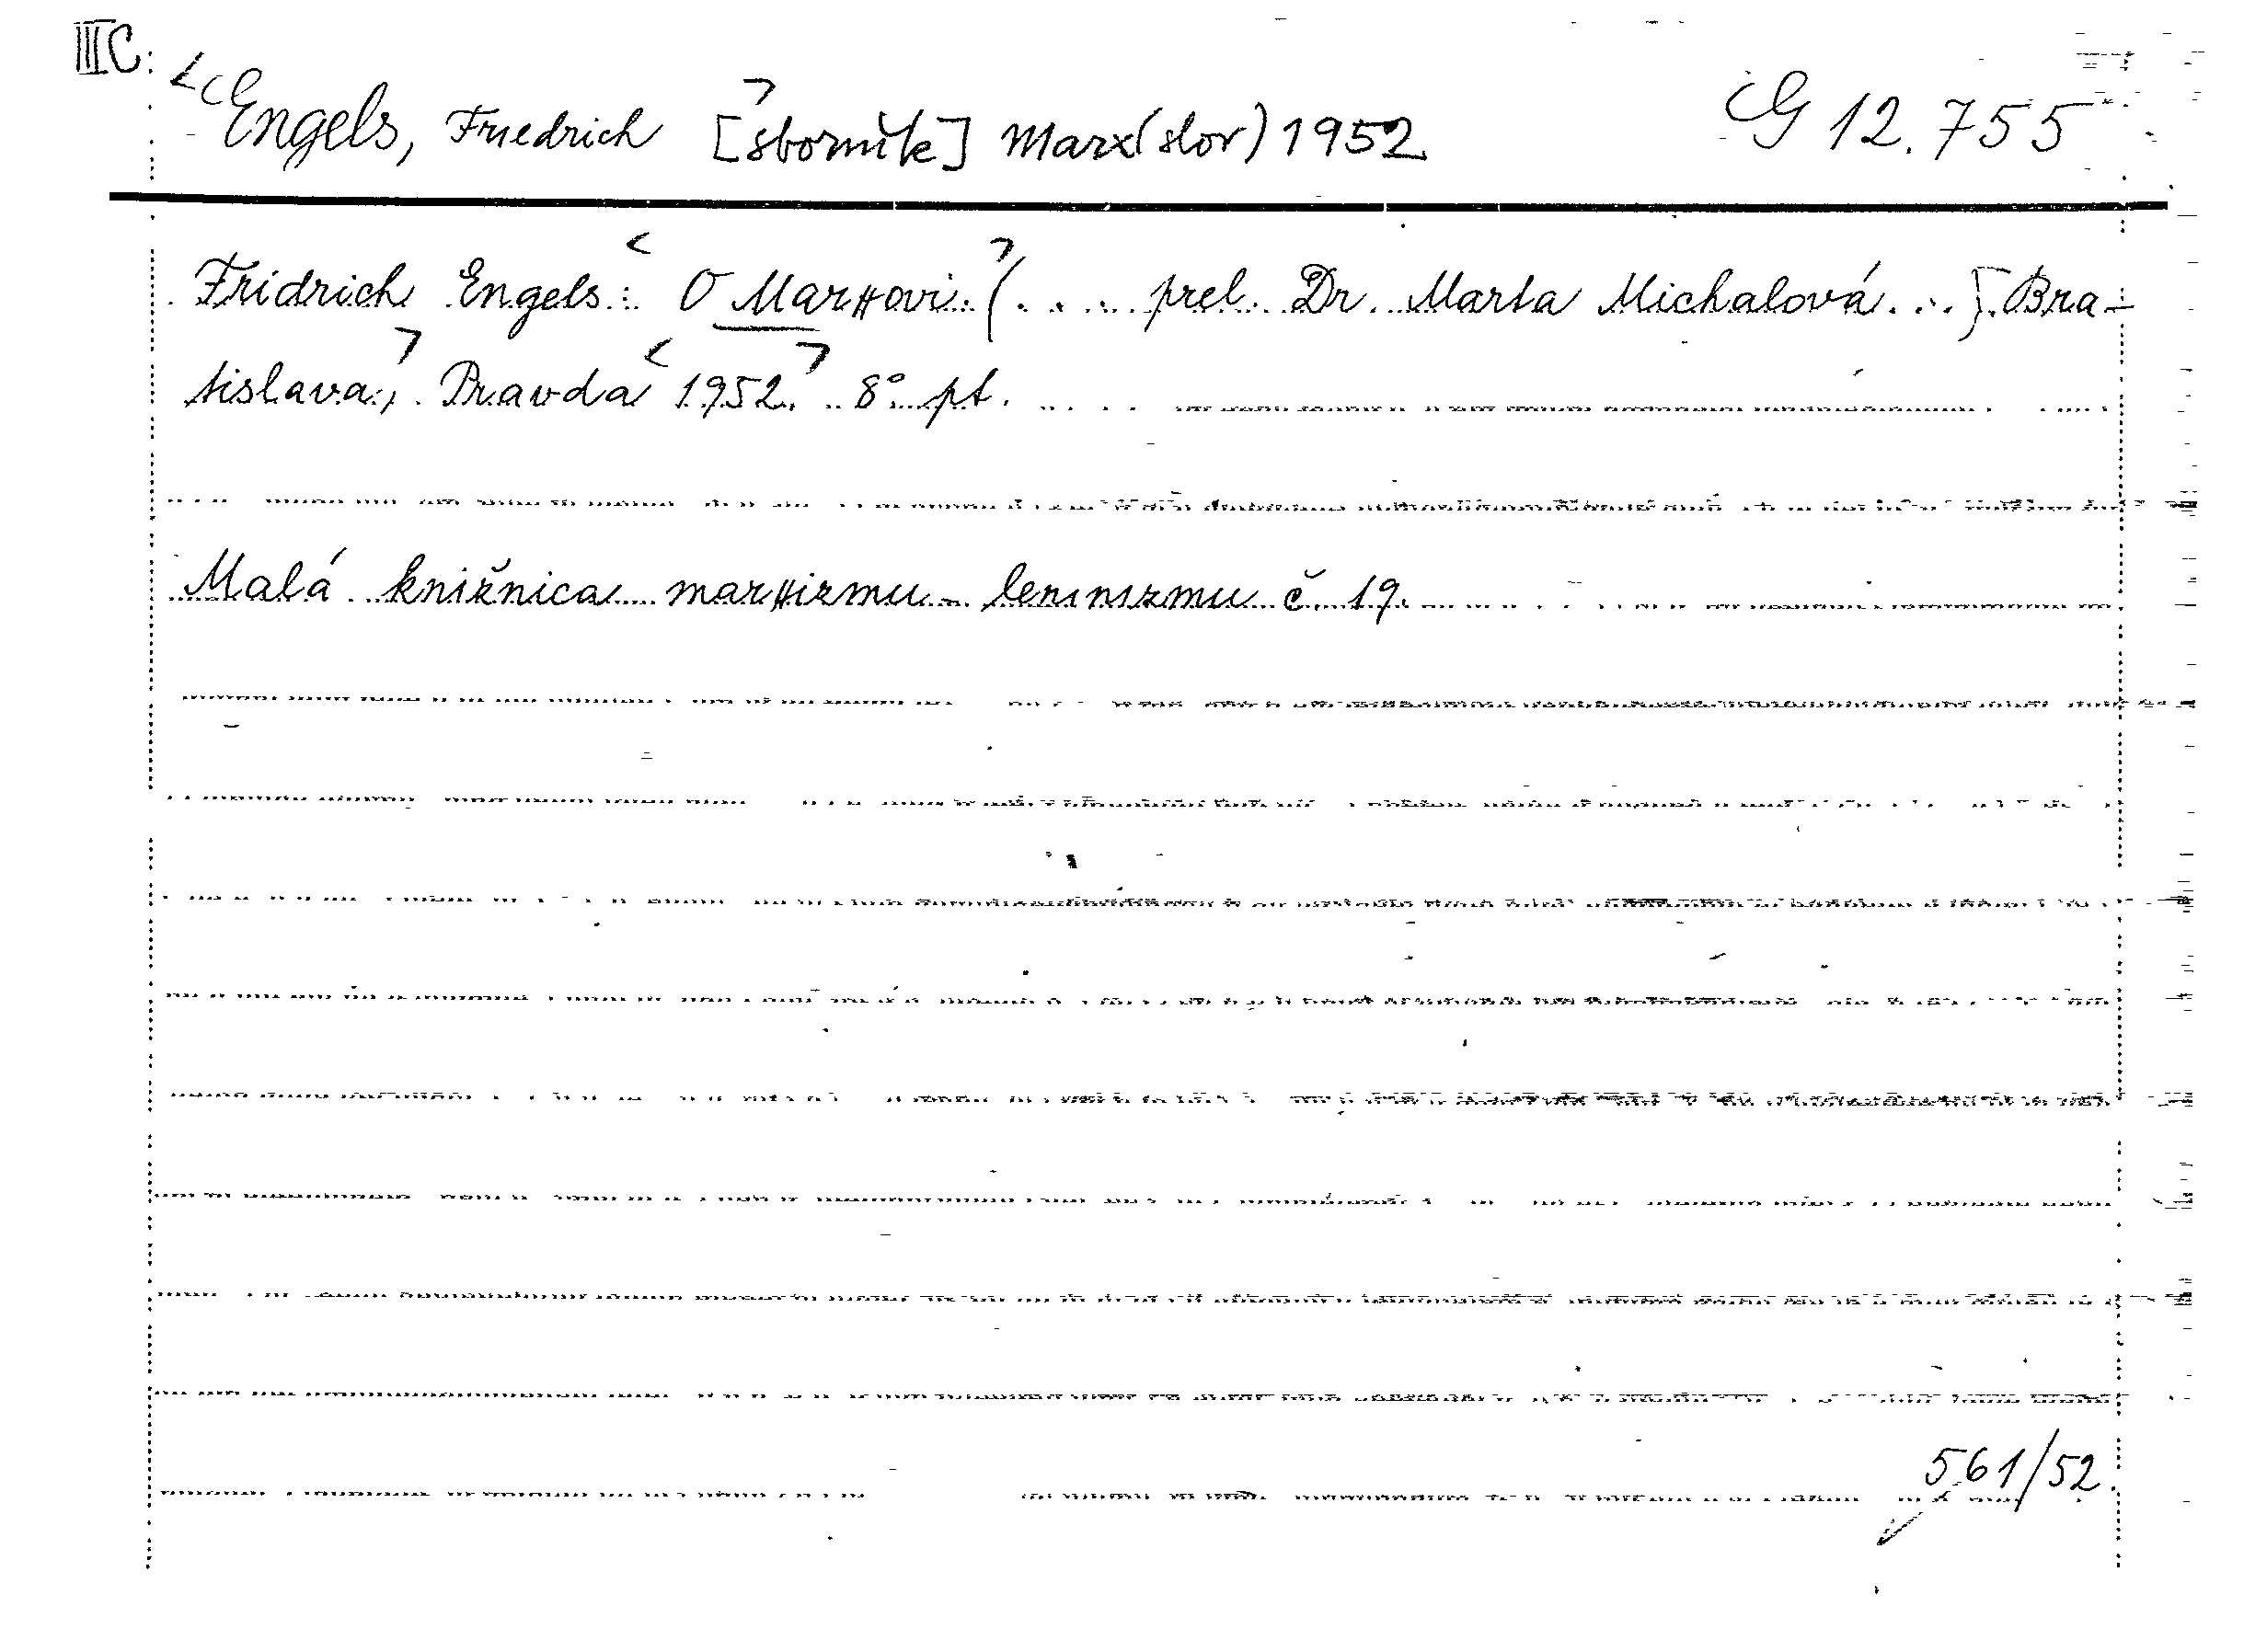 IIIC
Engels, Friedrich [sborník] Marx (slov) 1952 G 12.755
Fridrich Engels: O Marxovi. (.... prel. Dr. Marta Michalová...). Bra-
tislava, Pravda 1952. 8° pt.
Malá knižnica marxizmu-leninizmu č. 19.
561/52.